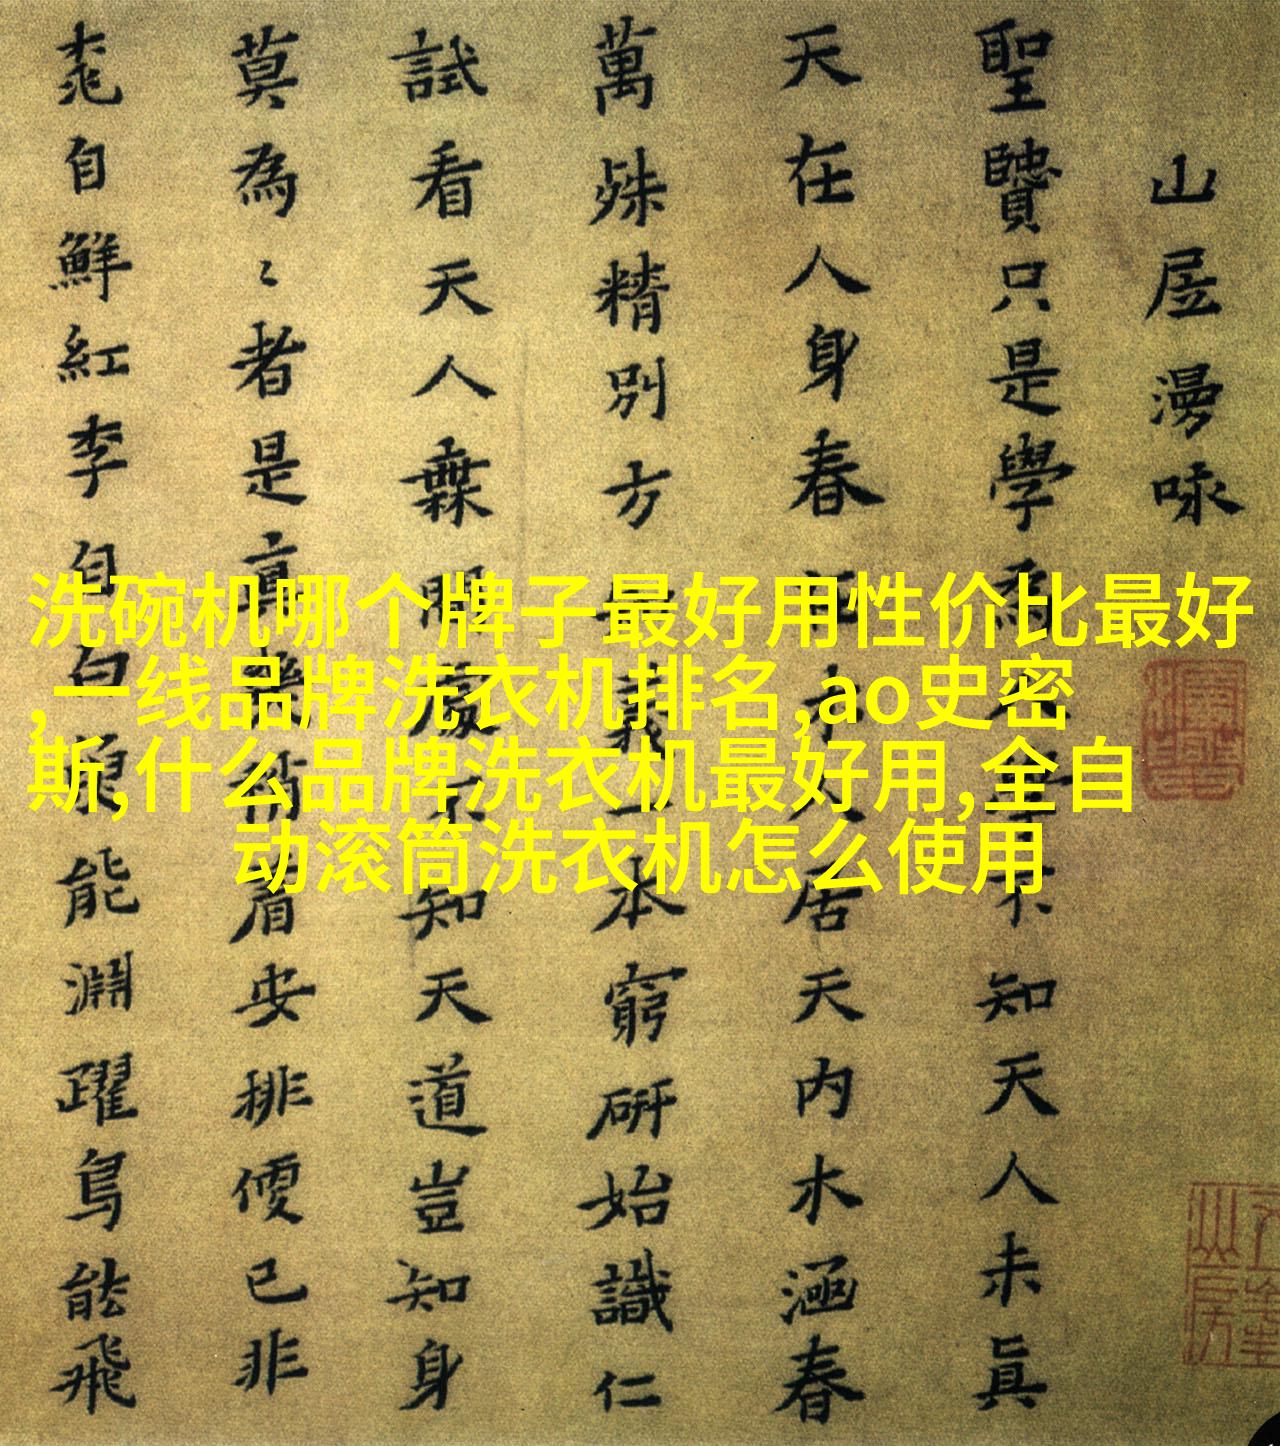 山㞐漫咏
聖贒只是學為人學不知天人未眞
天在人身春木人居天内木涵春
萬殊精別方義一本窮硏始識仁
試看天人橆不知天道豈知身
莫為〻者是真着安排便已非
桃自鮮紅李自白魚能淵躍鳥能飛
洗碗机哪个牌子最好用性价比最好
,一线品牌洗衣机排名,ao史密
斯,什么品牌洗衣机最好用,全自
动滚筒洗衣机怎么使用